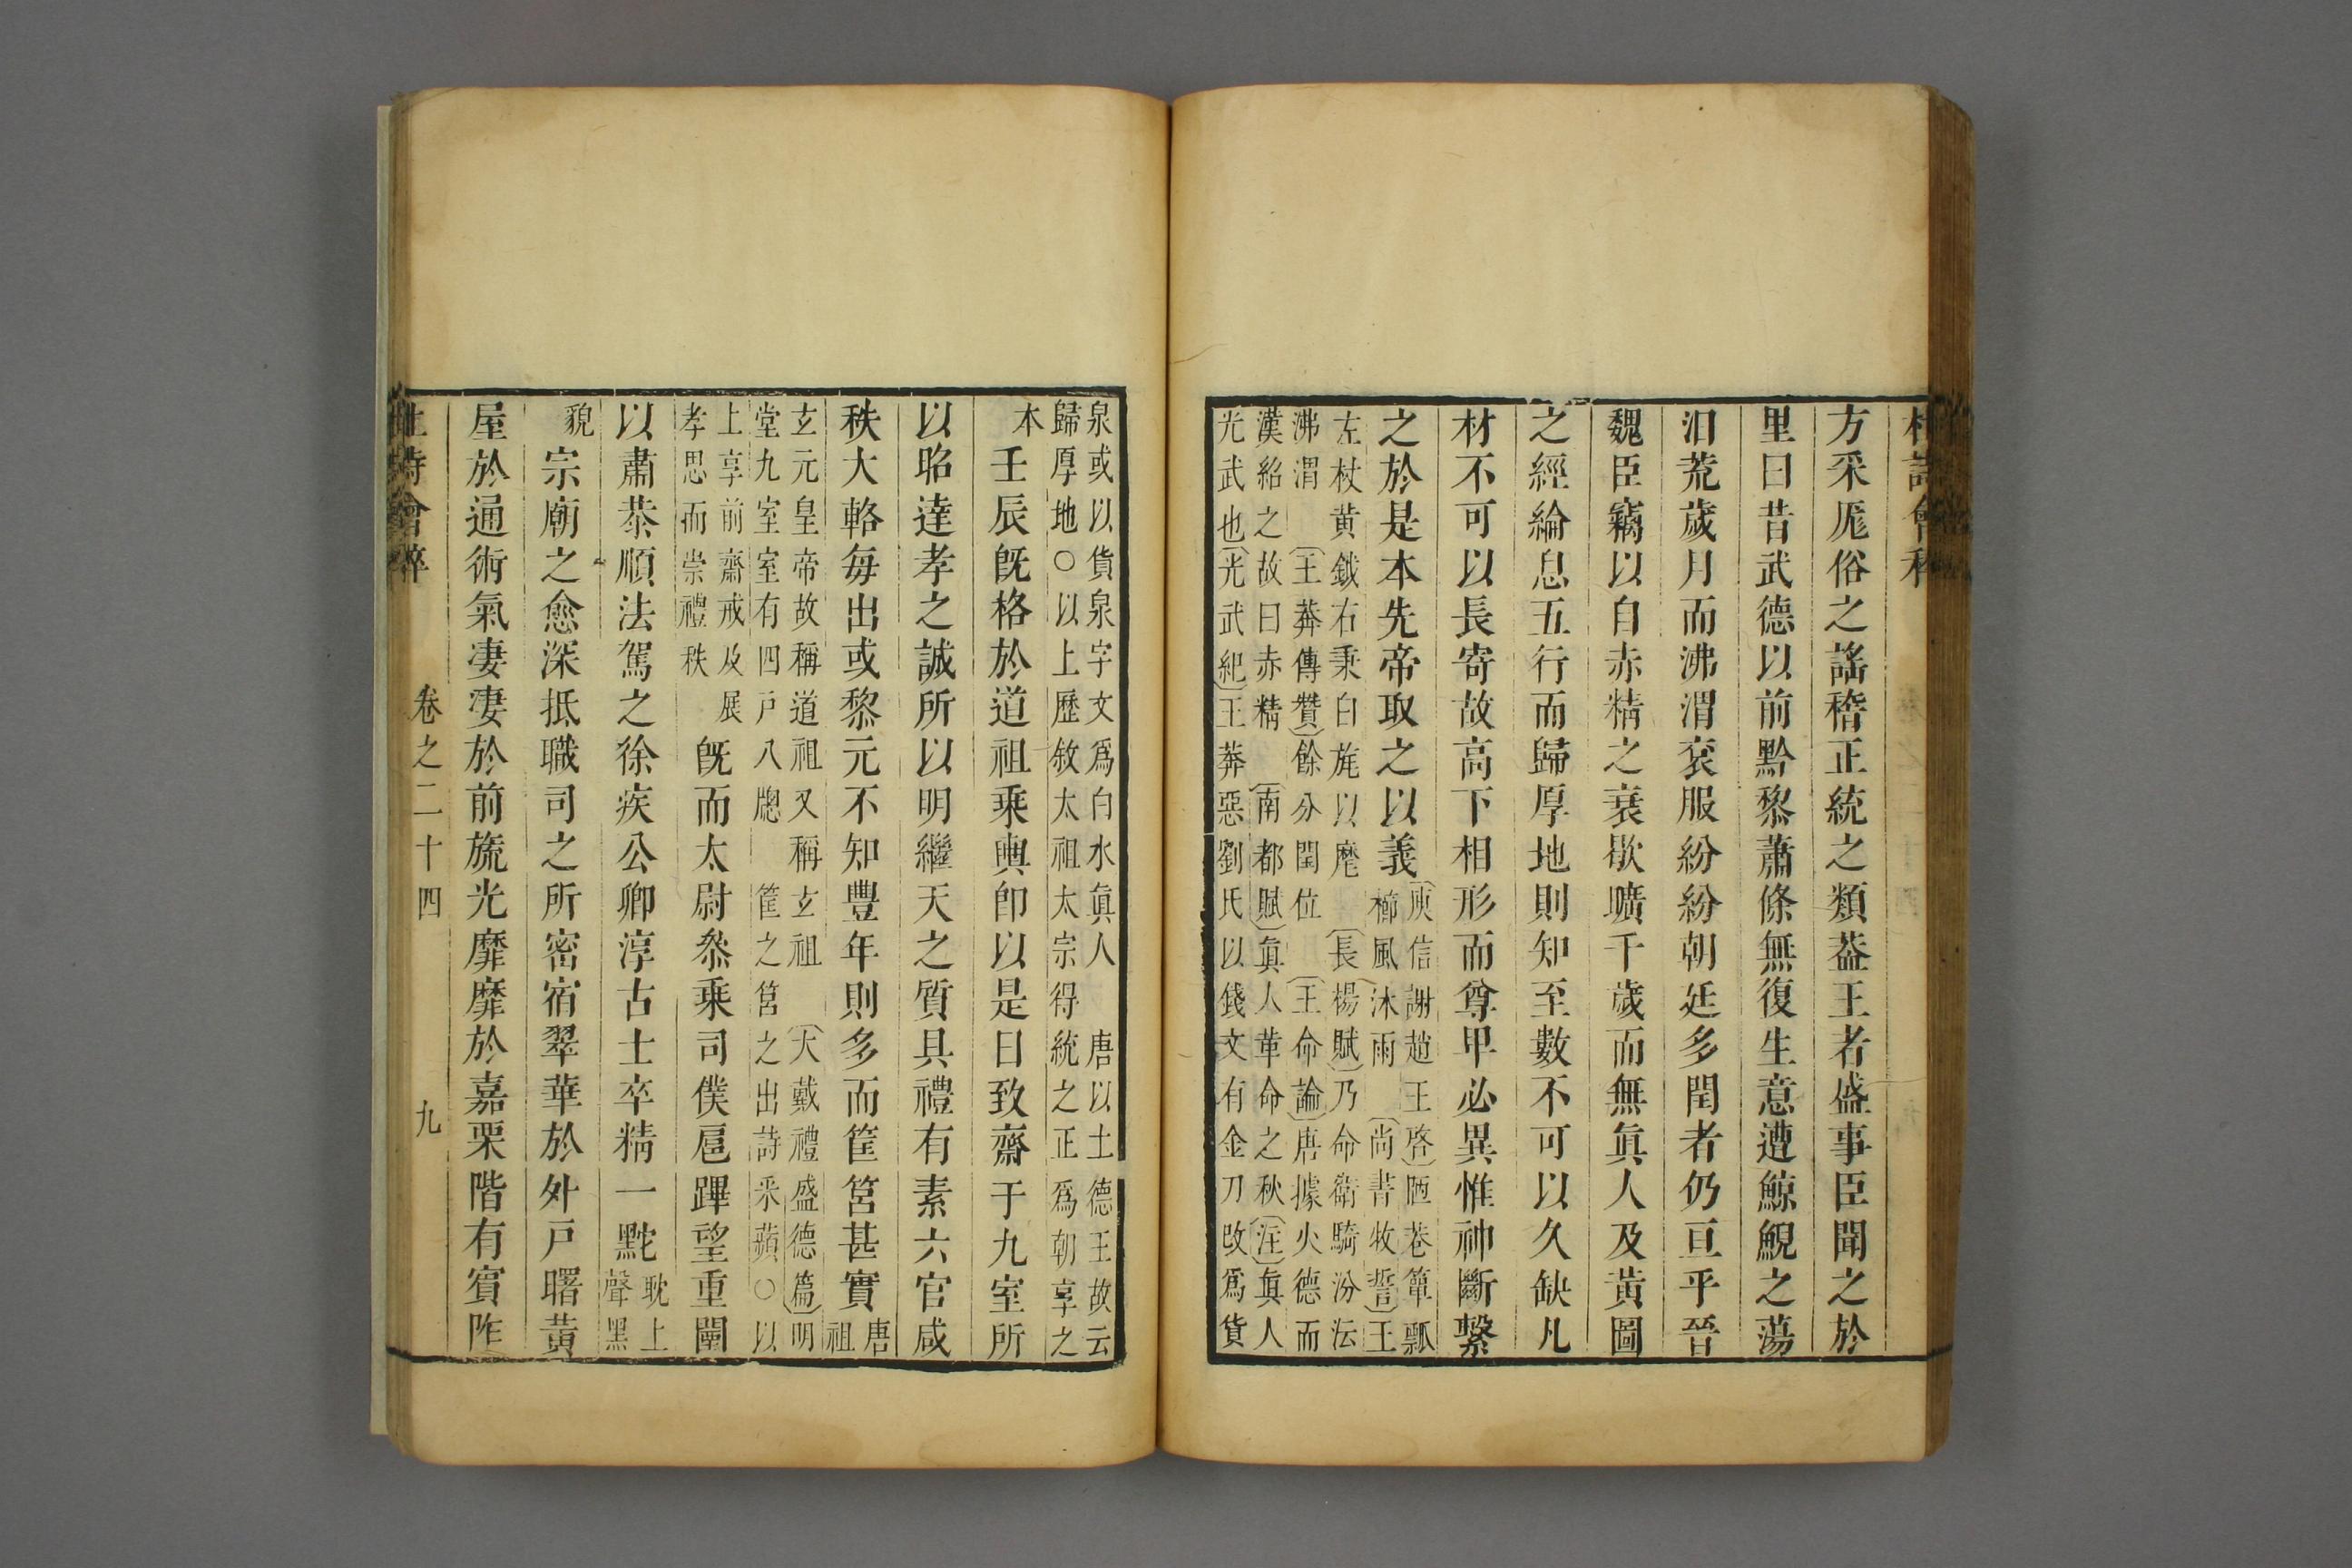 杜詩會稡
方采厖俗之謠稽正統之類葢王者盛事臣聞之於
里曰昔武德以前黔黎蕭條無復生意遭鯨鯢之蕩
汨荒歲月而沸渭衮服紛紛朝廷多閏者仍亘乎晉
魏臣竊以自赤精之衰歇曠千歲而無眞人及黃圖
之經綸息五行而歸厚地則知至數不可以久缺凡
材不可以長寄故高下相形而尊卑必異惟神斷繫
之於是本先帝取之以義
庾信謝趙王啓陋巷簞瓢
櫛風沐雨 尚書牧誓王
左杖黃鉞右秉白旄以麾 長楊賦乃命衛騎汾沄
沸渭 王莽傳贊餘分閏位 王命論唐據火德而
漢紹之故曰赤精 南都賦眞人革命之秋注眞人
光武也光武紀王莽惡劉氏以錢文有金刀改爲貨
泉或以貨泉字文爲白水眞人 唐以土德王故云
歸厚地○以上歷敘太祖太宗得統之正爲朝享之
本
壬辰旣格於道祖乘輿卽以是日致齋于九室所
以昭達孝之誠所以明繼天之質具禮有素六官咸
秩大輅每出或黎元不知豐年則多而筐筥甚實
唐
祖
玄元皇帝故稱道祖又稱玄祖 大戴禮盛德篇明
堂九室室有四戶八牕 筐之筥之出詩采蘋○以
上享前齋戒及展
孝思而崇禮秩
旣而太尉叅乘司僕扈蹕望重闈
以肅恭順法駕之徐疾公卿淳古士卒精一黕
耽上
聲黑
貌
宗廟之愈深抵職司之所密宿翠華於外戶曙黃
屋於通術氣凄凄於前旒光靡靡於嘉栗階有賓阼
杜詩會稡
卷之二十四
九